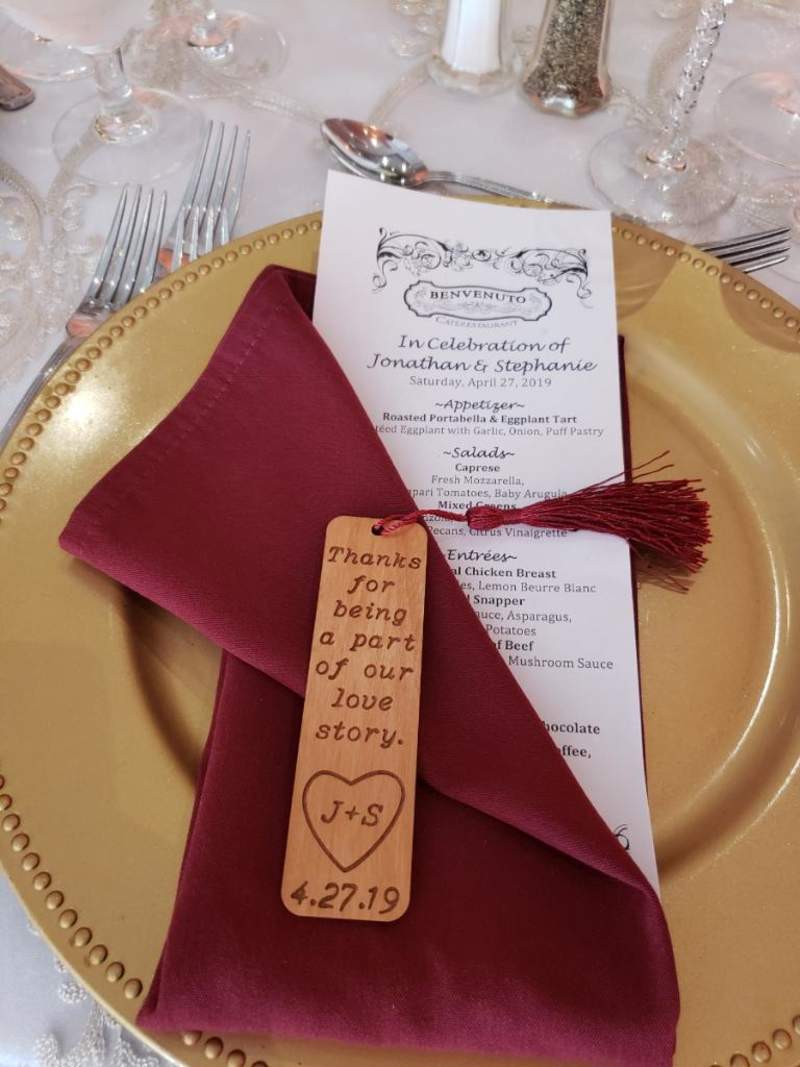 BENVENUTO
CATERESTAURANT
In Celebration of
Jonathan & Stephanie
Saturday, April 27, 2019
~Appetizer~
Roasted Portabella & Eggplant Tart
Eggplant with Garlic, Onion, Puff Pastry
~Salads~
Caprese
Fresh Mozzarella,
Tomatoes, Baby Arugula
Mixed Greens
Pecans, Citrus Vinaigrette
Entrées~
Chicken Breast
Lemon Beurre Blanc
Snapper
Asparagus,
Potatoes
of Beef
Mushroom Sauce
Thanks
for
being
a part
of our
love
story.
J+S
4.27.19